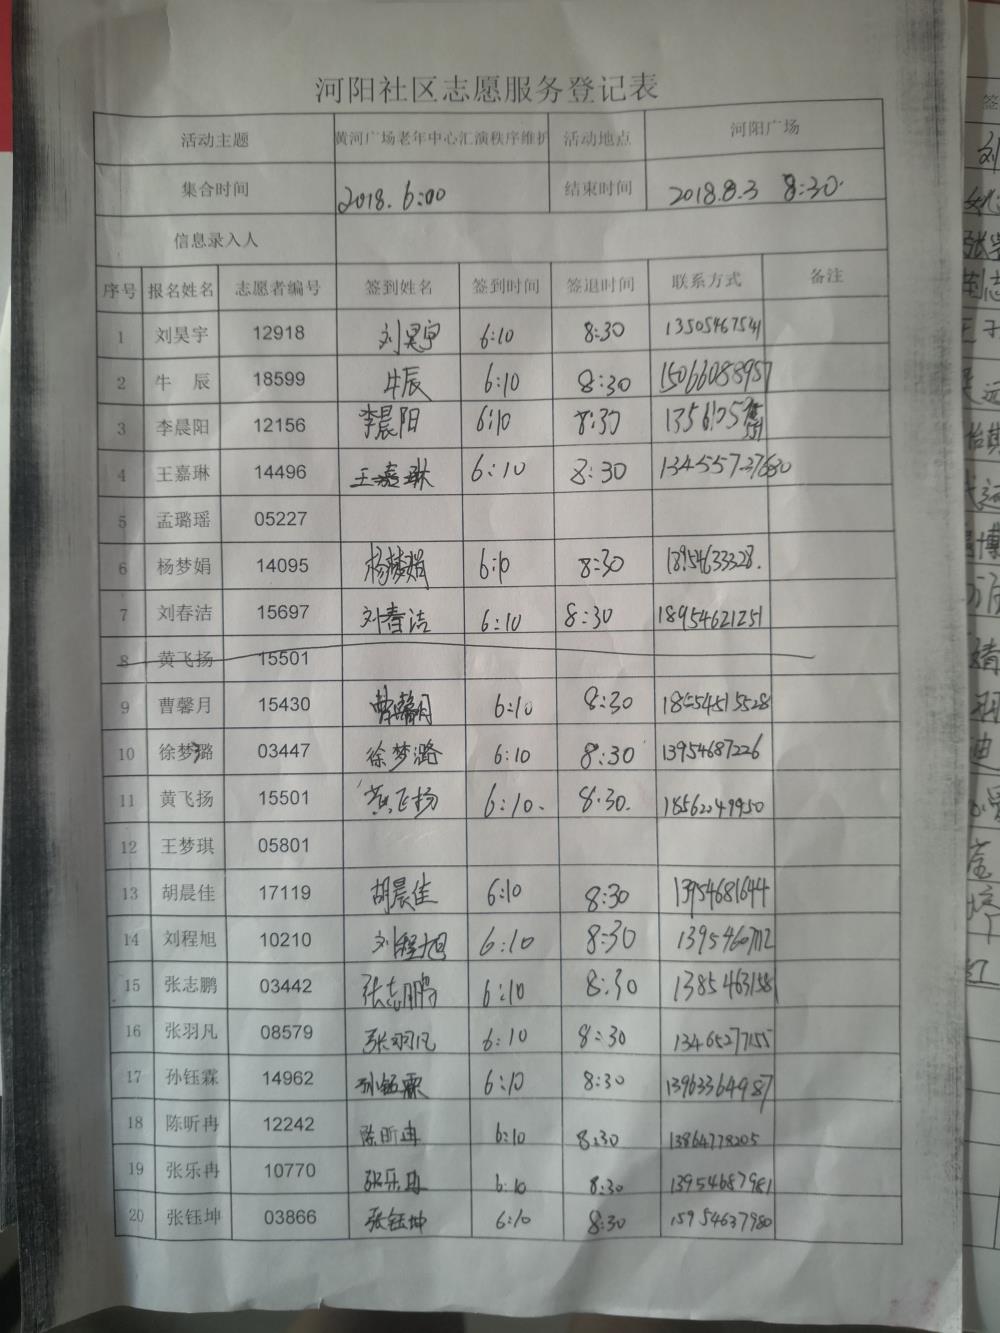 河阳社区志愿服务登记表
活动主题 黄河广场老年中心汇演秩序维护 活动地点 河阳广场
集合时间 2018. 6:00 结束时间 2018.8.3 8:30.
信息录入人
序号 报名姓名 志愿者编号 签到姓名 签到时间 签退时间 联系方式 备注
1 刘昊宇 12918 刘昊宇 6:10 8:30
2 牛辰 18599 牛辰 6:10 8:30 15066088957
3 李晨阳 12156 李晨阳 6:10 8:30
4 王嘉琳 14496 王嘉琳 6:10 8:30
5 孟璐瑶 05227
6 杨梦娟 14095 杨梦娟 6:10 8:30 18954633328.
7 刘春洁 15697 刘春洁 6:10 8:30 18954621251
8 黄飞扬 15501
9 曹馨月 15430 曹馨月 6:10 8:30 18554515528
10 徐梦璐 03447 徐梦潞 6:10 8:30 13954687226
11 黄飞扬 15501 黄飞扬 6:10. 8:30. 18562249950
12 王梦琪 05801
13 胡晨佳 17119 胡晨佳 6:10 8:30 13954681644
14 刘程旭 10210 刘程旭 6:10 8:30
15 张志鹏 03442 张志鹏 6:10 8:30 13854631581
16 张羽凡 08579 张羽凡 6:10 8:30 13465277155
17 孙钰霖 14962 孙钰霖 6:10 8:30 13963364987
18 陈昕冉 12242 陈昕冉 6:10 8:30 13864778205
19 张乐冉 10770 张乐冉 6:10 8:30 13954687981
20 张钰坤 03866 张钰坤 6:10 8:30 15954637980